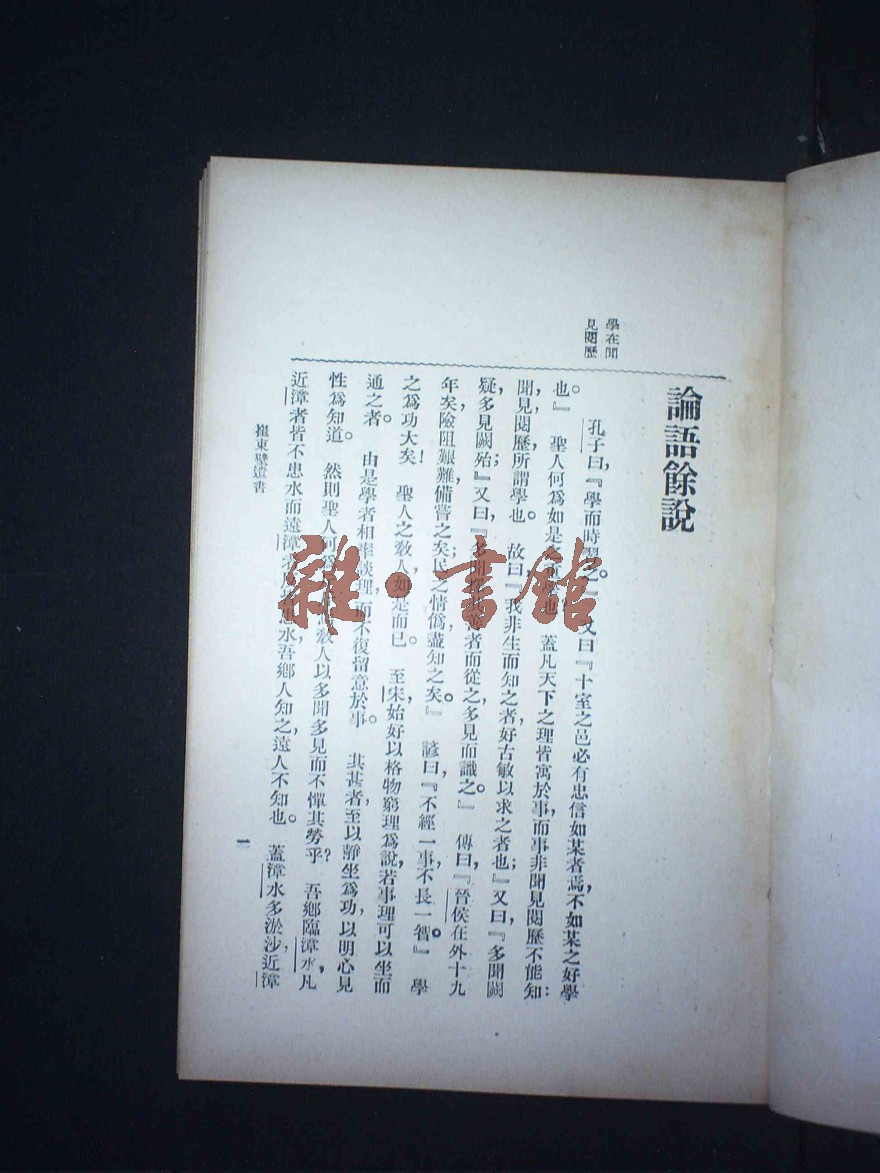 論語餘說
學在聞
見閱歷
孔子曰,『學而時習之。』又曰,『十室之邑必有忠信如某者焉,不如某之好學
也。』聖人何爲如是
也?蓋凡天下之理皆寓於事,而事非聞見閱歷不能知:
聞見閱歷,所謂學也。故曰,『我非生而知之者,好古敏以求之者也;』又曰,『多聞闕
疑,多見闕殆;』又曰,『多聞擇其善者而從之,多見而識之。』傳曰,『晉侯在外十九
年矣,險阻艱難,備嘗之矣;民之情僞,盡知之矣。』諺曰,『不經一事,不長一智。』學
之爲功大矣!聖人之敎人,如是而已。至宋,始好以格物窮理爲說,若事理可以坐而
通之者。由是學者相率談理,而不復留意於事。其甚者,至以靜坐爲功,以明心見
性爲知道。然則聖人何爲
敎人以多聞多見而不憚其勞乎?吾鄉臨漳水,凡
近漳者皆不患水而遠漳者
患水,吾鄉人知之,遠人不知也。蓋漳水多淤沙,近漳
崔東壁遺書
一
雜·書館